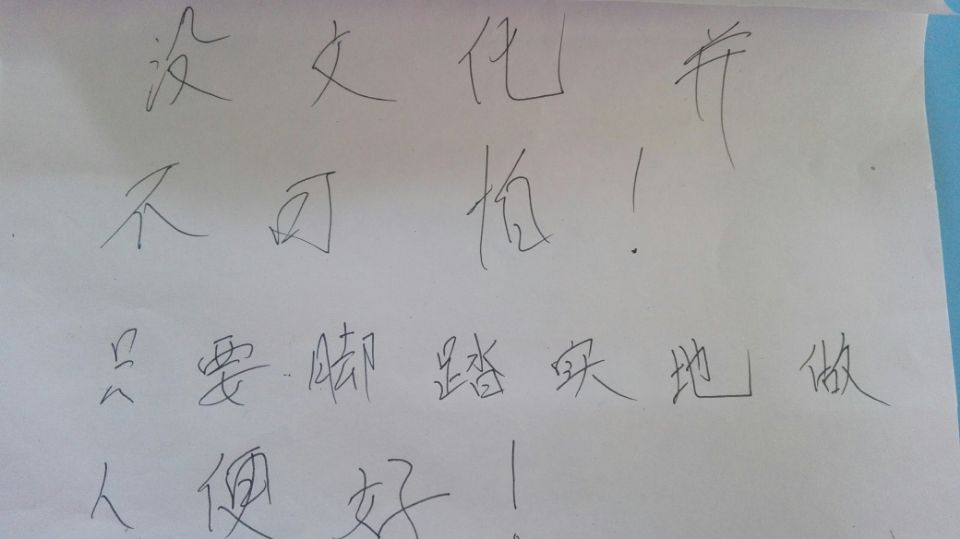 没文化并
不可怕！
只要脚踏实地做
人便好！